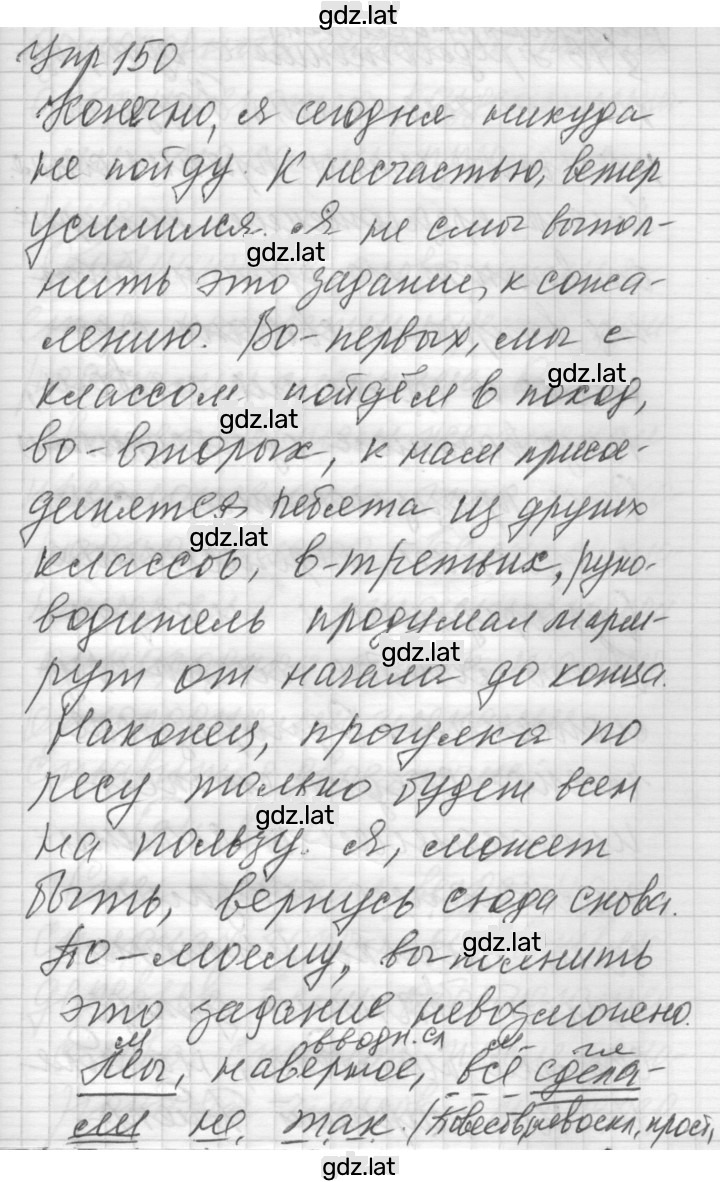 gdz.lat
Упр 150
Конечно, я сегодня никуда
не пойду. К несчастью, ветер
усилился. Я не смог выпол-
gdz.lat
нить это задание, к сожа-
лению. Во-первых, мы с
gdz.lat
классом пойдём в поход,
gdz.lat
во-вторых, к нам присое-
динятся ребята из других
gdz.lat
классов, в-третьих, руко-
водитель продумал марш-
gdz.lat
рут от начала до конца.
Наконец, прогулка по
лесу только будет всем
gdz.lat
на пользу. Я, может
быть, вернусь сюда снова.
gdz.lat
По-моему, выполнить
это задание невозможно.
м вводн.сл м. гл
Мы, наверное, всё сдела-
ли не так. (Повеств, невоскл, прост,
gdz.lat